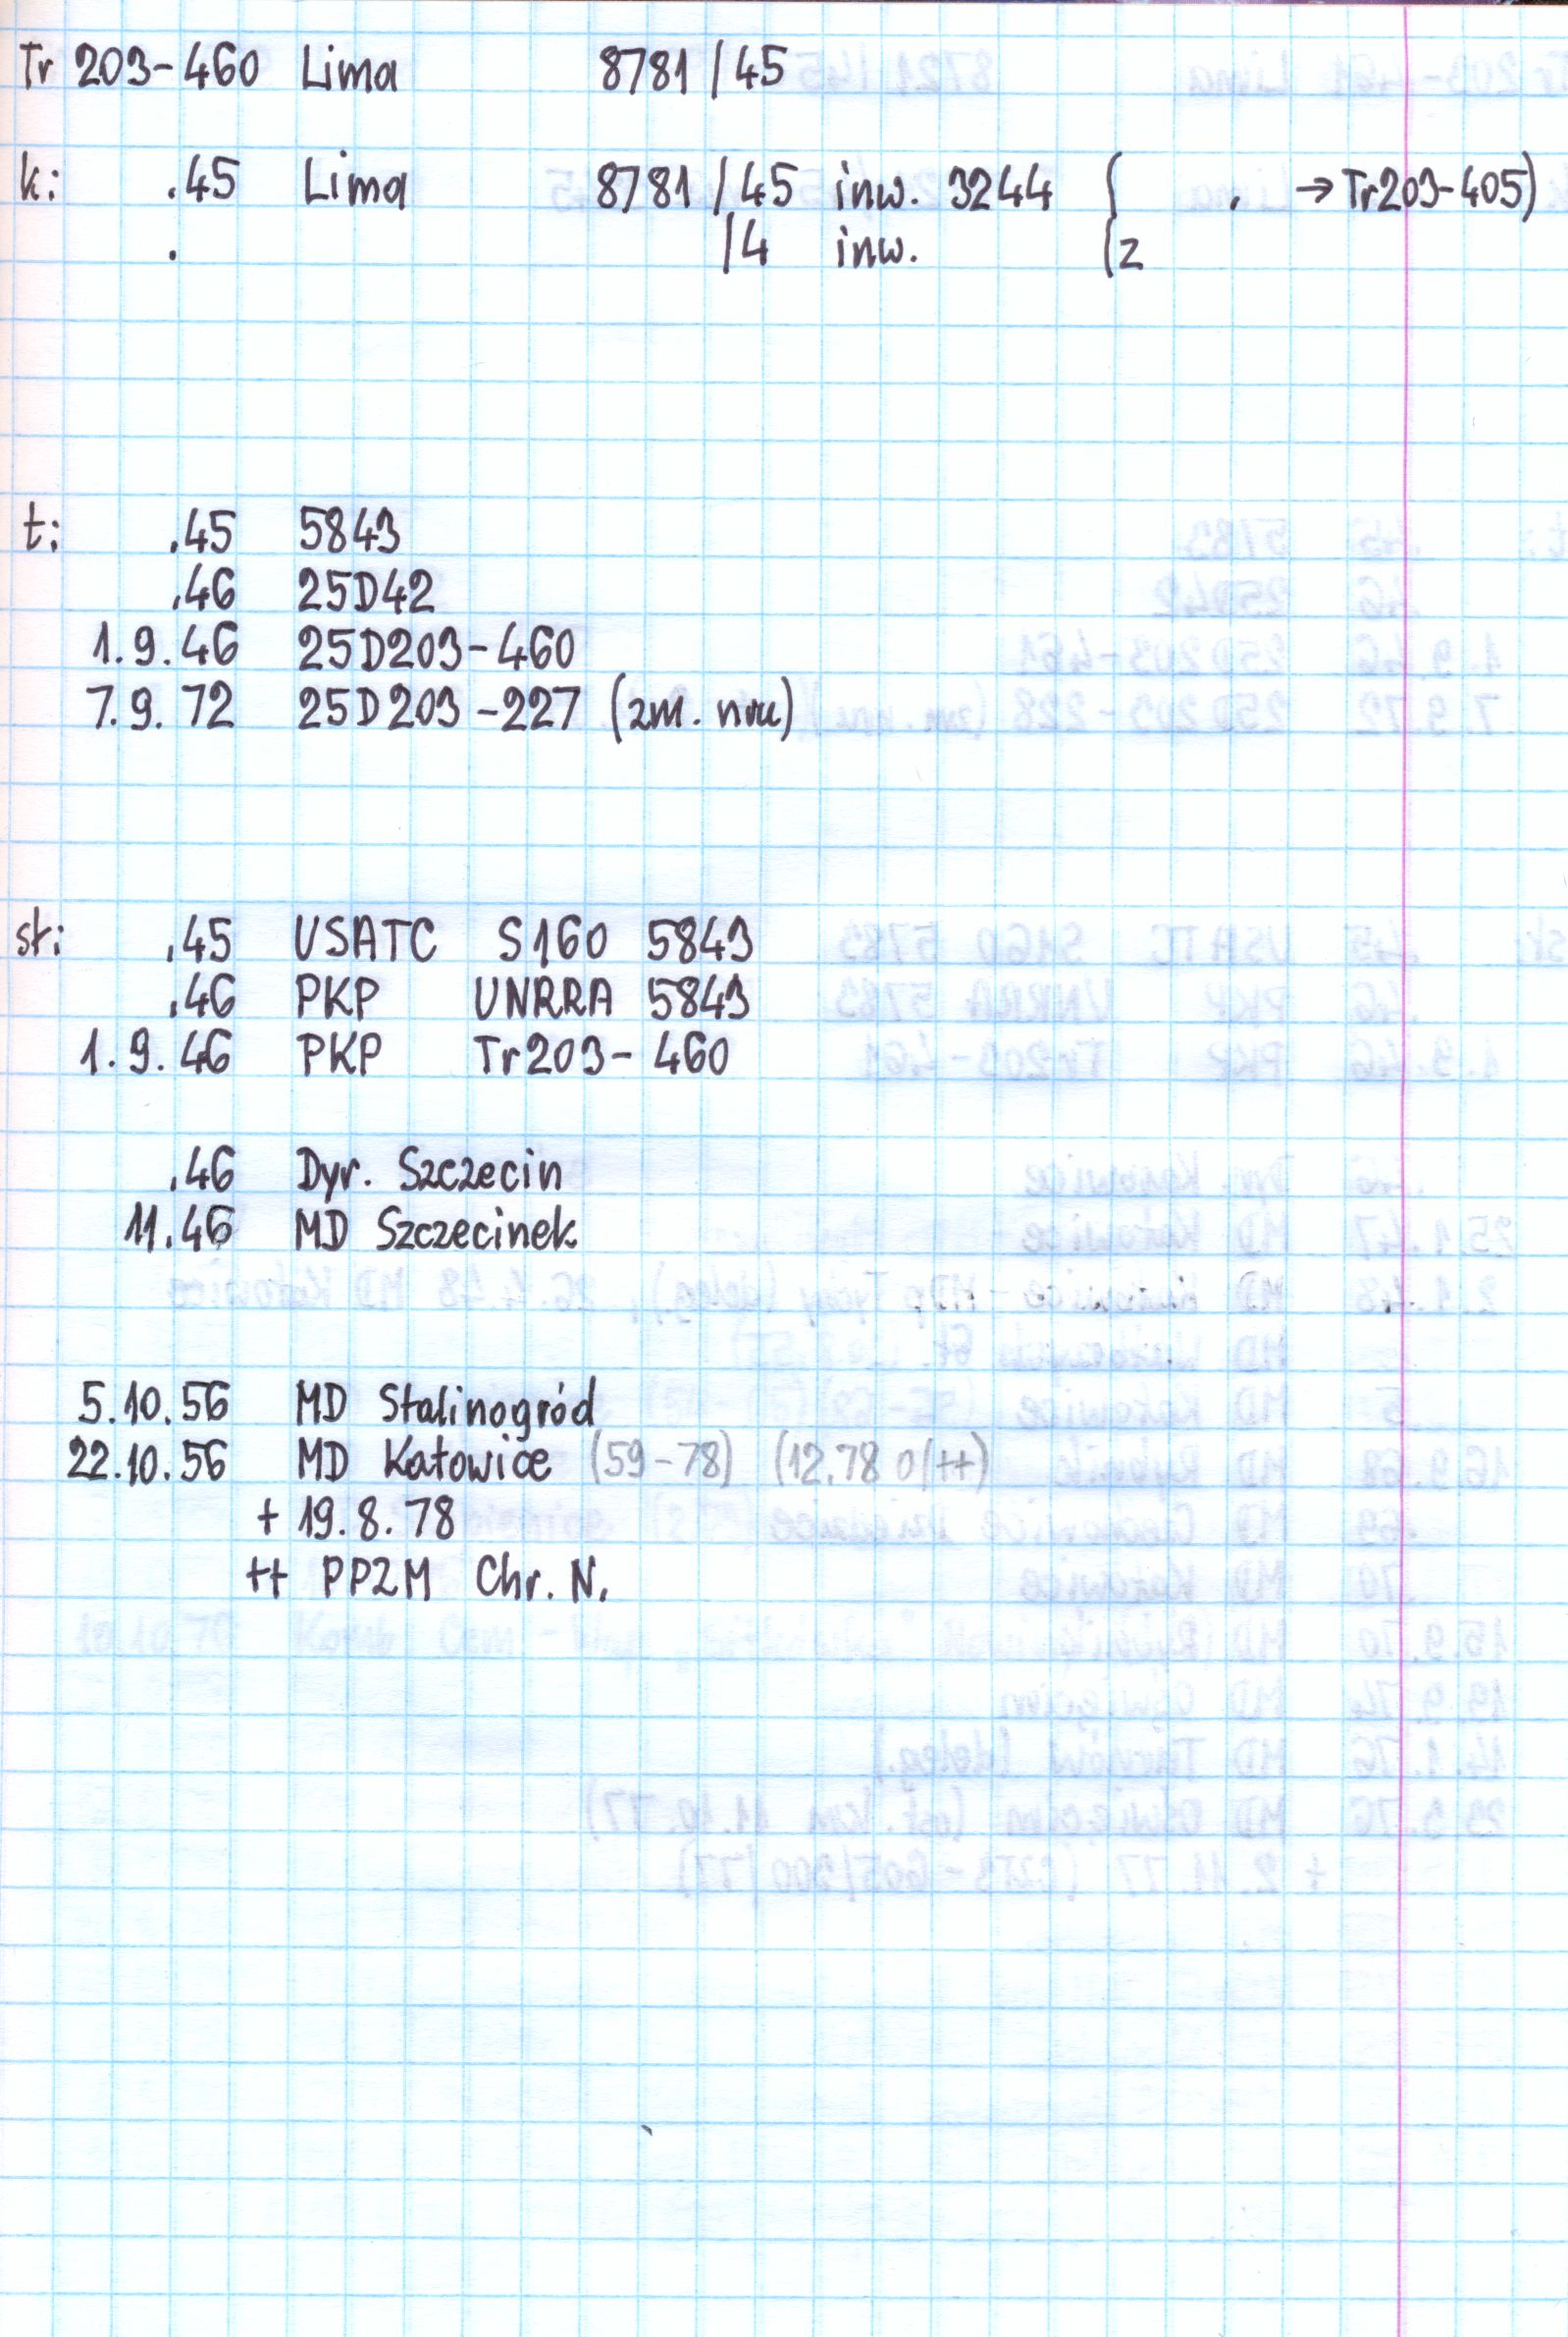 Tr 203-460 Lima 8781/45
k: .45 Lima 8781/45 inw. 3244 ( . → Tr203-405)
. /4 inw. (z
t: .45 5843
.46 25D42
1.9.46 25D203-460
7.9.72 25D203-227 (zm. nru)
st: .45 USATC S160 5843
.46 PKP UNRRA 5843
1.9.46 PKP Tr203-460
.46 Dyr. Szczecin
11.46 MD Szczecinek
5.10.56 MD Stalinogród
22.10.56 MD Katowice (59-78) (12.78 o/++)
+ 19.8.78
++ PPZM Chr. N.